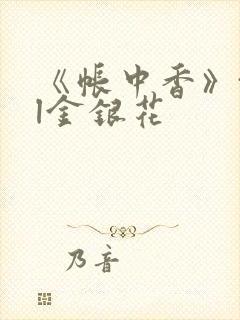 《帐中香》
|金银花
乃音